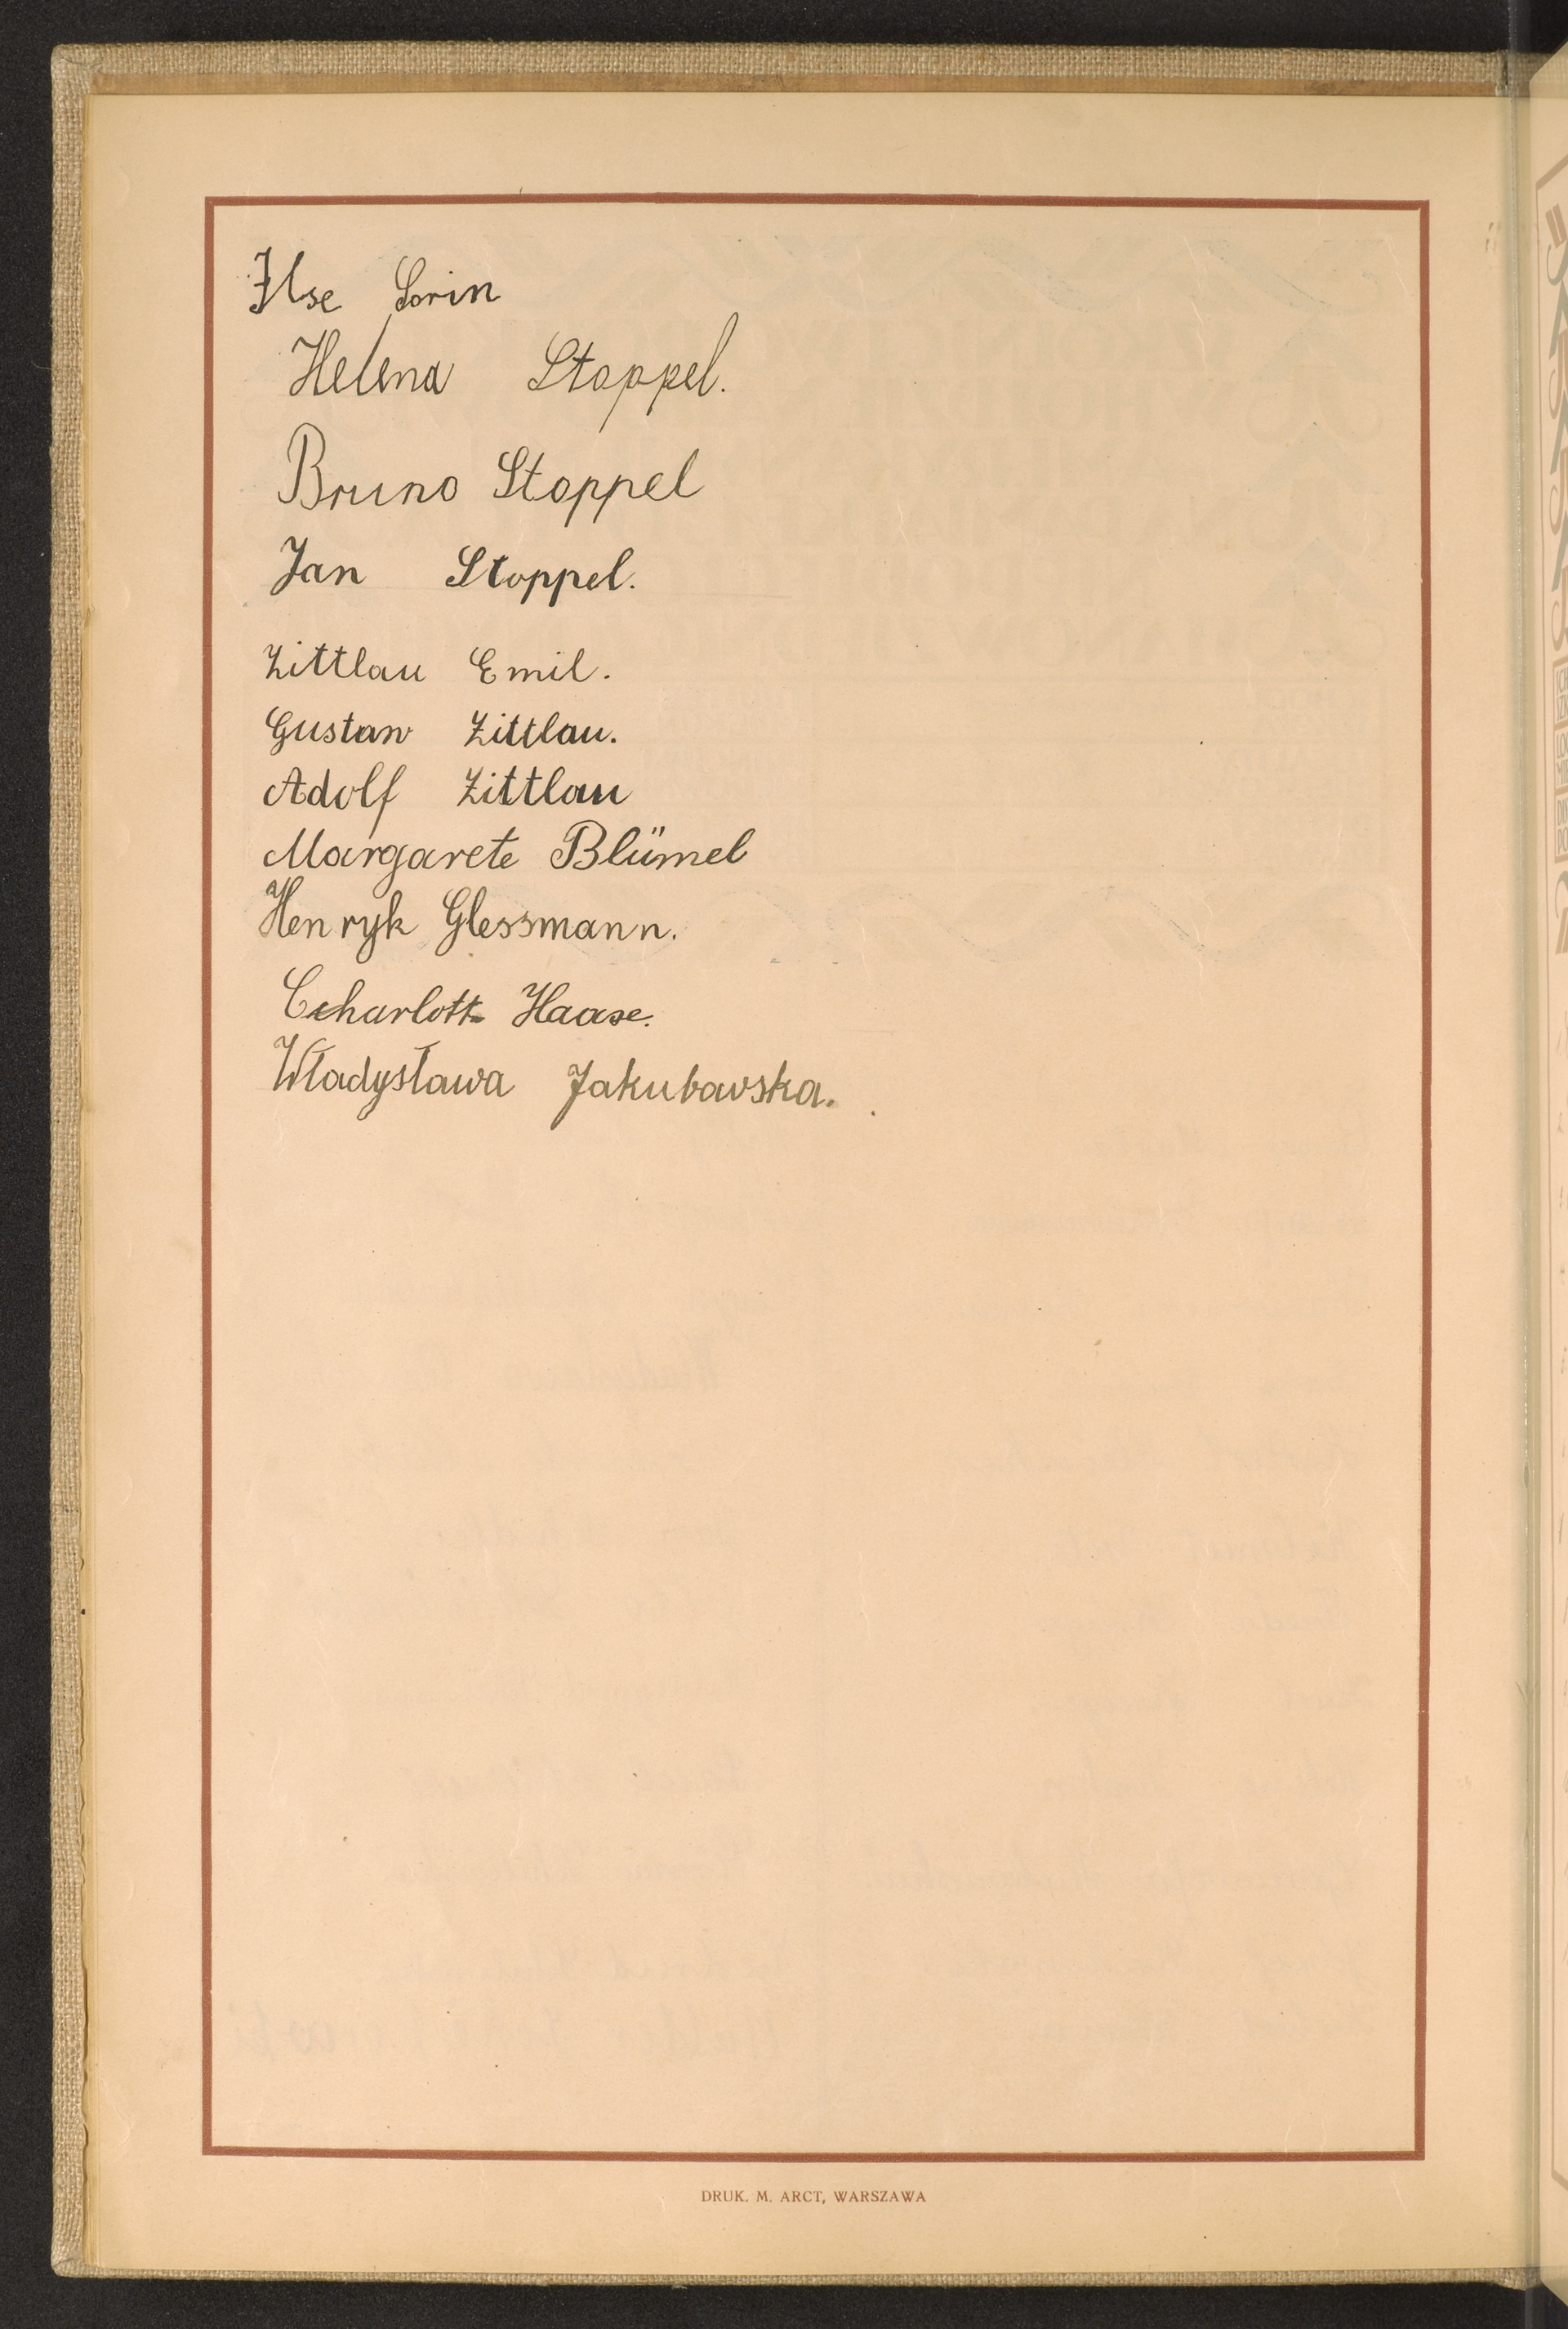 Ilse Lorin
Helena Stoppel.
Bruno Stoppel
Jan Stoppel.
Zittlau Emil.
Gustaw Zittlau.
Adolf Zittlau
Margarete Blümel
Henryk Glessmann.
Ccharlotte Haase.
Władysława Jakubowska.
DRUK. M. ARCT, WARSZAWA